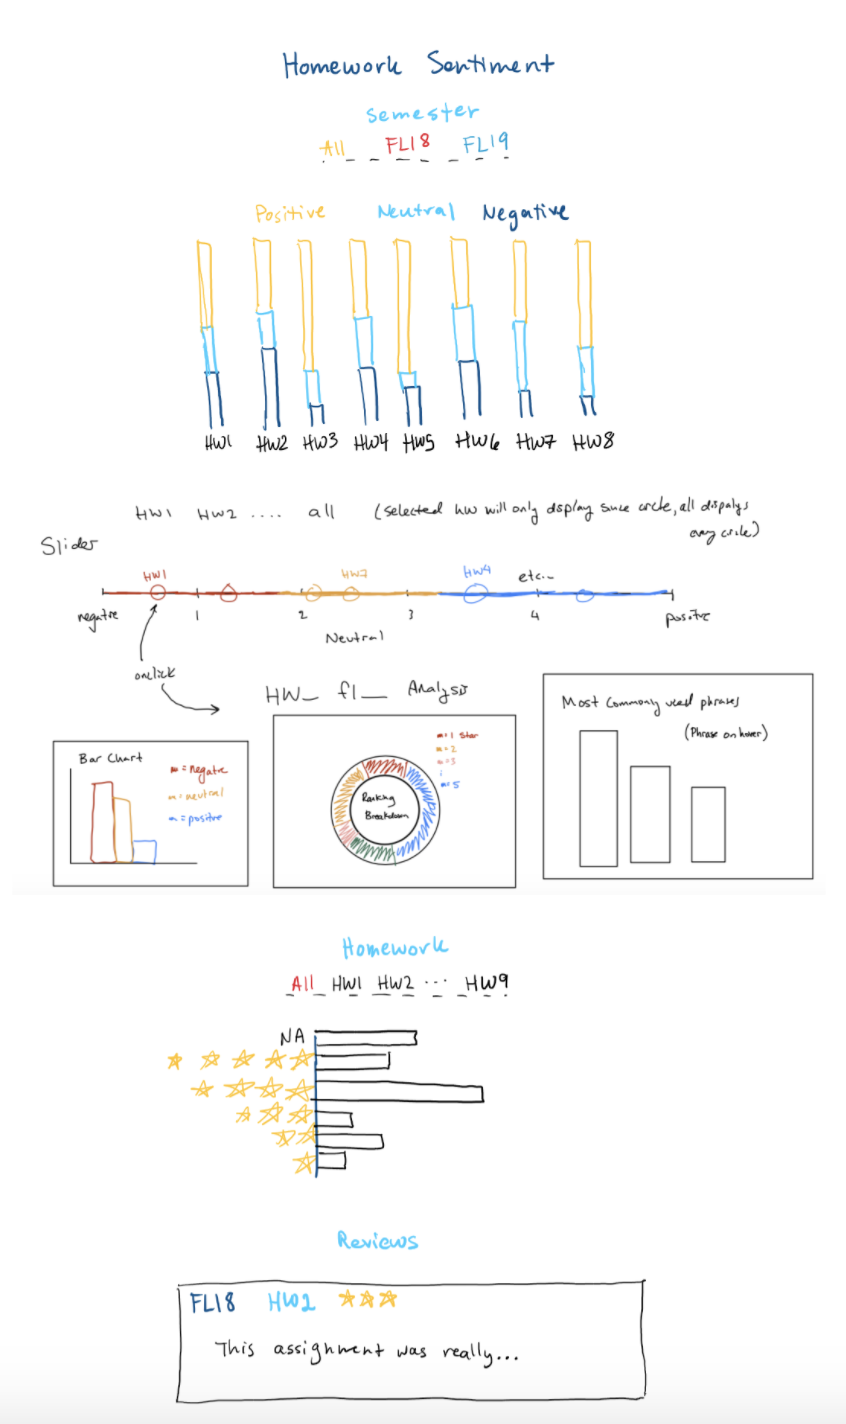 Homework Sentiment
Semester
All FL18 FL19
Positive Neutral Negative
HW1 HW2 HW3 HW4 HW5 HW6 HW7 HW8
HW1 HW2 .... all (selected hw will only display since circle, all dispalys
every circle)
Slider
HW1 HW2 HW4 etc...
negative 1 2 3 4 positive
Neutral
onclick
HW_ fl__ Analysis
Bar Chart
= negative
= neutral
= positive
= 1 star
= 2
= 3
= 5
Ranking
Breakdown
Most commonly used phrases
(Phrase on hover)
Homework
All HW1 HW2 ... HW9
NA
Reviews
FL18 HW2
This assignment was really...